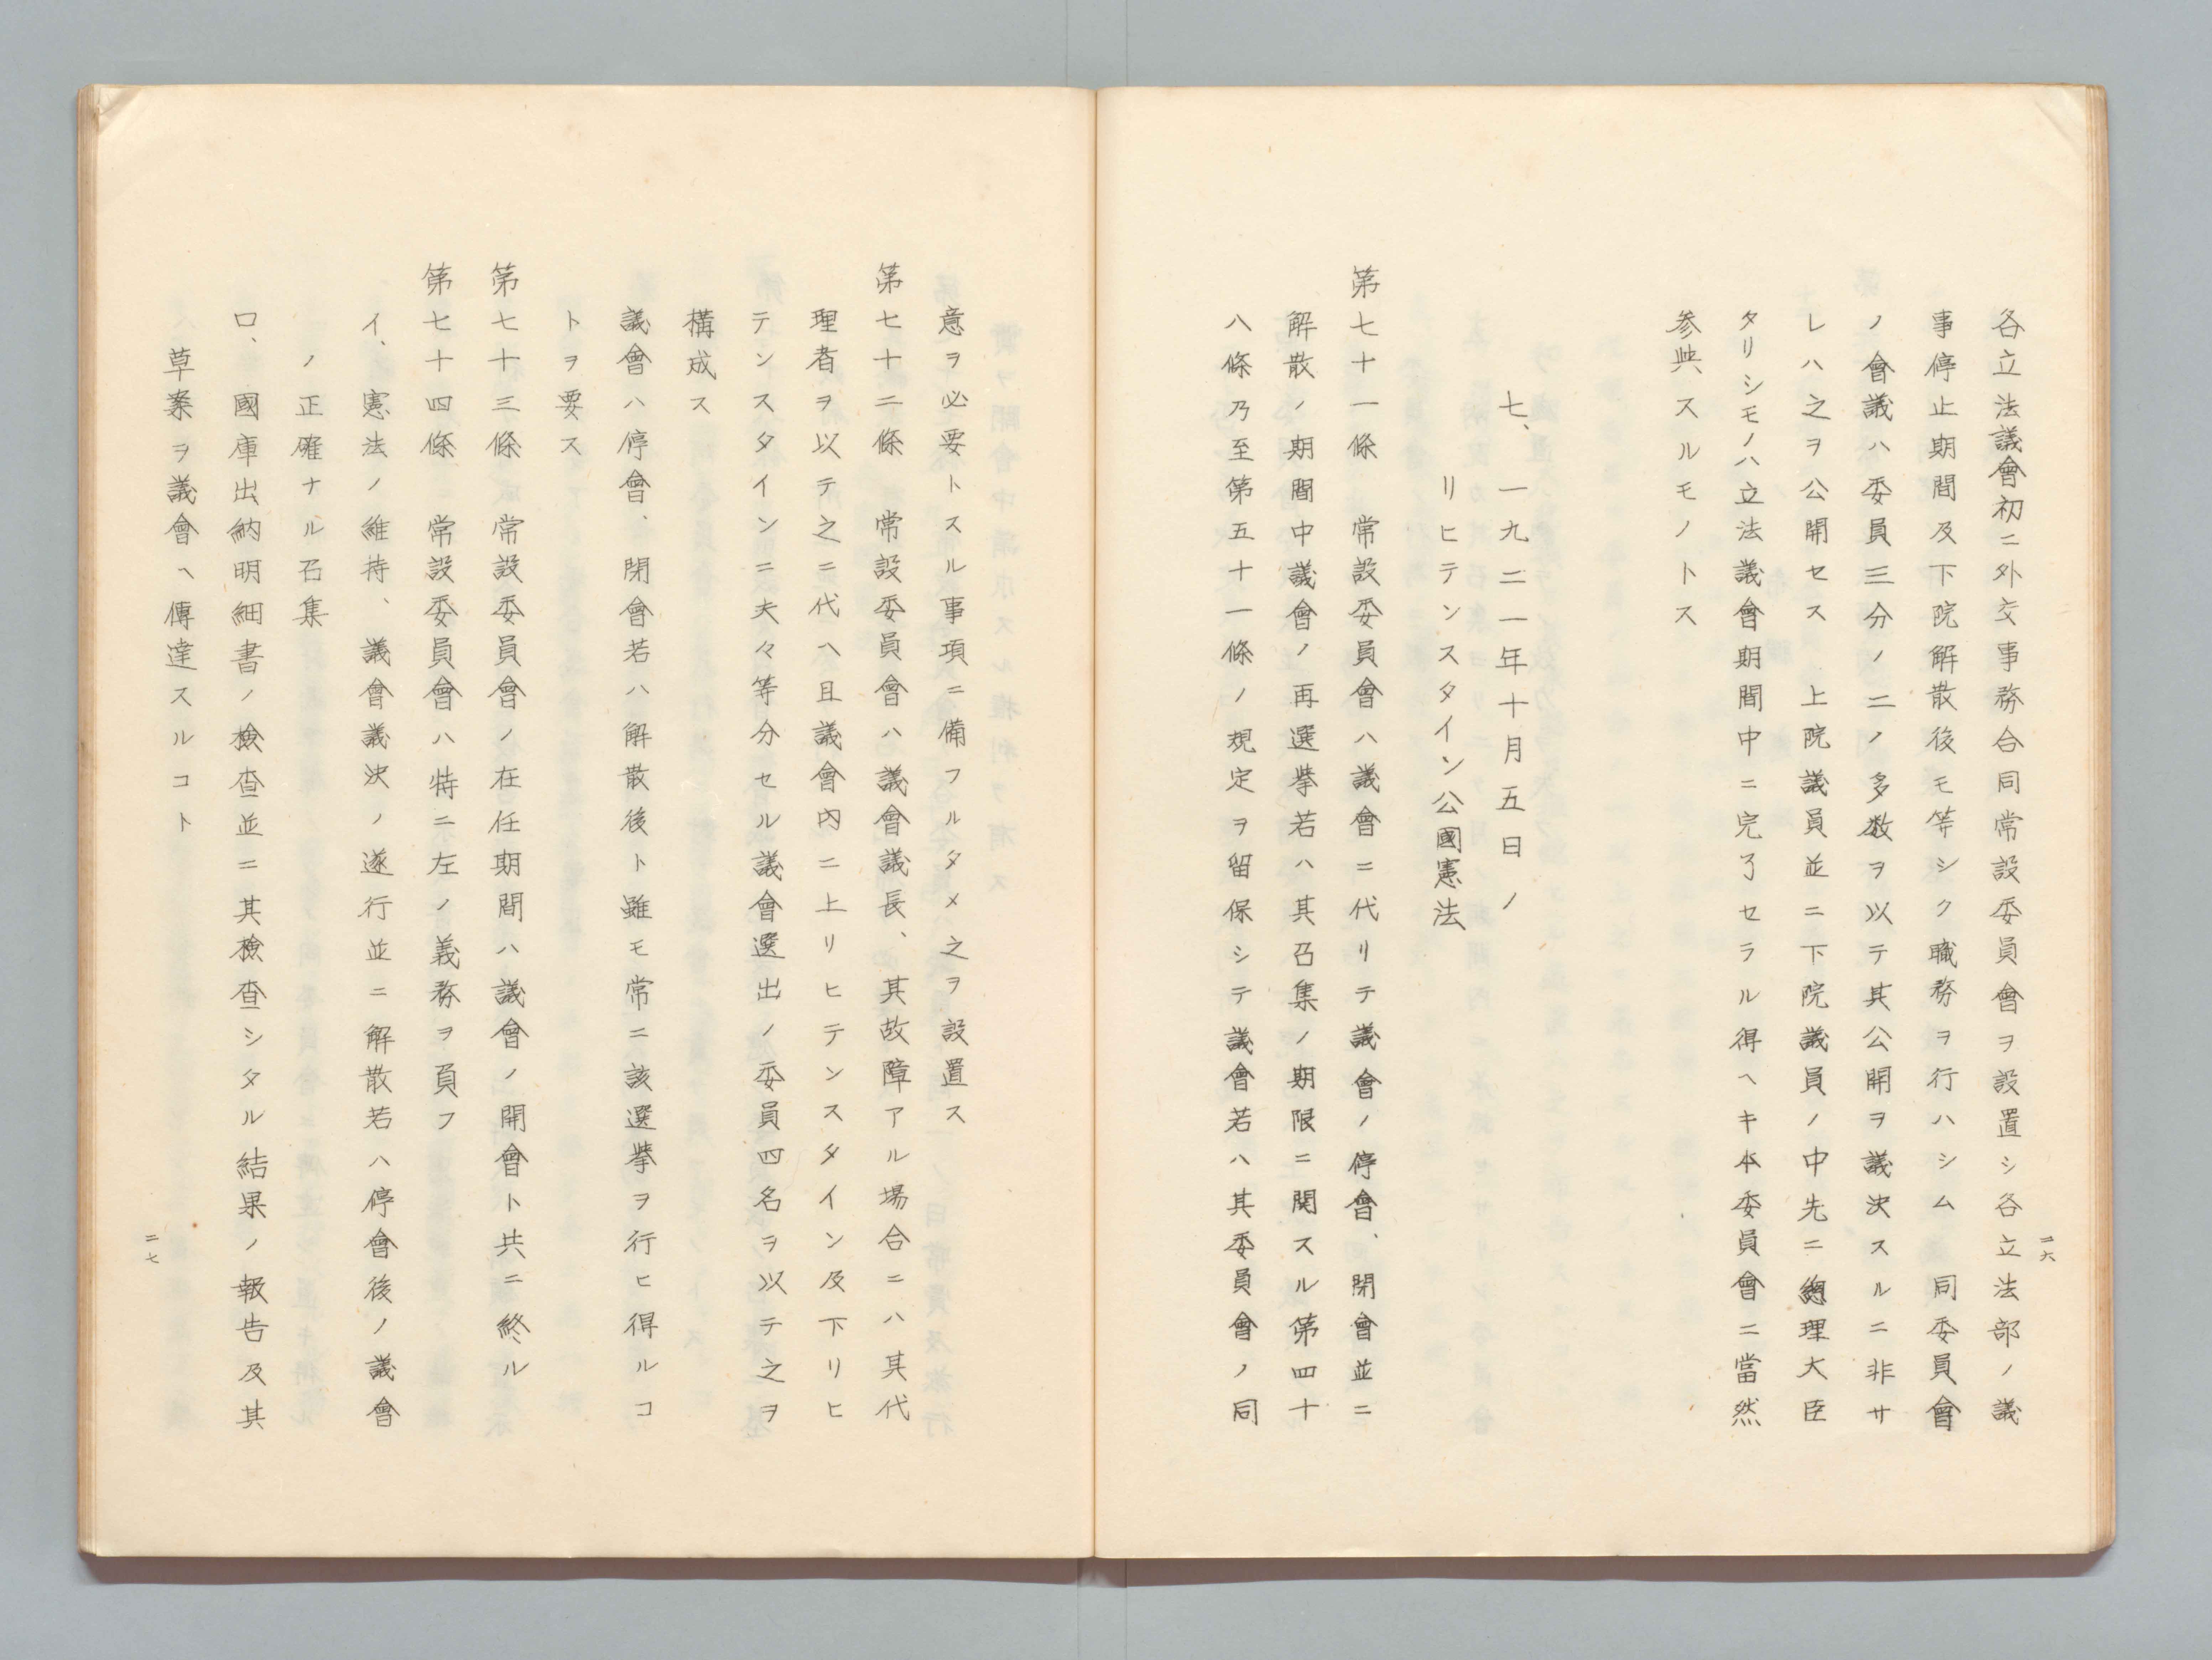 各立法議會初ニ外交事務合同常設委員會ヲ設置シ各立法部ノ議
事停止期間及下院解散後モ等シク職務ヲ行ハシム　同委員會
ノ會議ハ委員三分ノ二ノ多数ヲ以テ其公開ヲ議決スルニ非サ
レハ之ヲ公開セス　上院議員並ニ下院議員ノ中先ニ總理大臣
タリシモノハ立法議會期間中ニ完了セラル得ヘキ本委員會ニ當然
参與スルモノトス
七、一九二一年十月五日ノ
リヒテンスタイン公國憲法
第七十一條　常設委員會ハ議會ニ代リテ議會ノ停會、閉會並ニ
解散ノ期間中議會ノ再選挙若ハ其召集ノ期限ニ関スル第四十
八條乃至第五十一條ノ規定ヲ留保シテ議會若ハ其委員會ノ同
二六
意ヲ必要トスル事項ニ備フルタメ之ヲ設置ス
第七十二條　常設委員會ハ議會議長、其故障アル場合ニハ其代
理者ヲ以テ之ニ代ヘ且議會内ニ上リヒテンスタイン及下リヒ
テンスタインニ夫々等分セル議會選出ノ委員四名ヲ以テ之ヲ
構成ス
議會ハ停會、閉會若ハ解散後ト雖モ常ニ該選挙ヲ行ヒ得ルコ
トヲ要ス
第七十三條　常設委員會ノ在任期間ハ議會ノ開會ト共ニ終ル
第七十四條　常設委員會ハ特ニ左ノ義務ヲ負フ
イ、憲法ノ維持、議會議決ノ遂行並ニ解散若ハ停會後ノ議會
ノ正確ナル召集
ロ、國庫出納明細書ノ檢査並ニ其檢査シタル結果ノ報告及其
草案ヲ議會ヘ傳達スルコト
二七